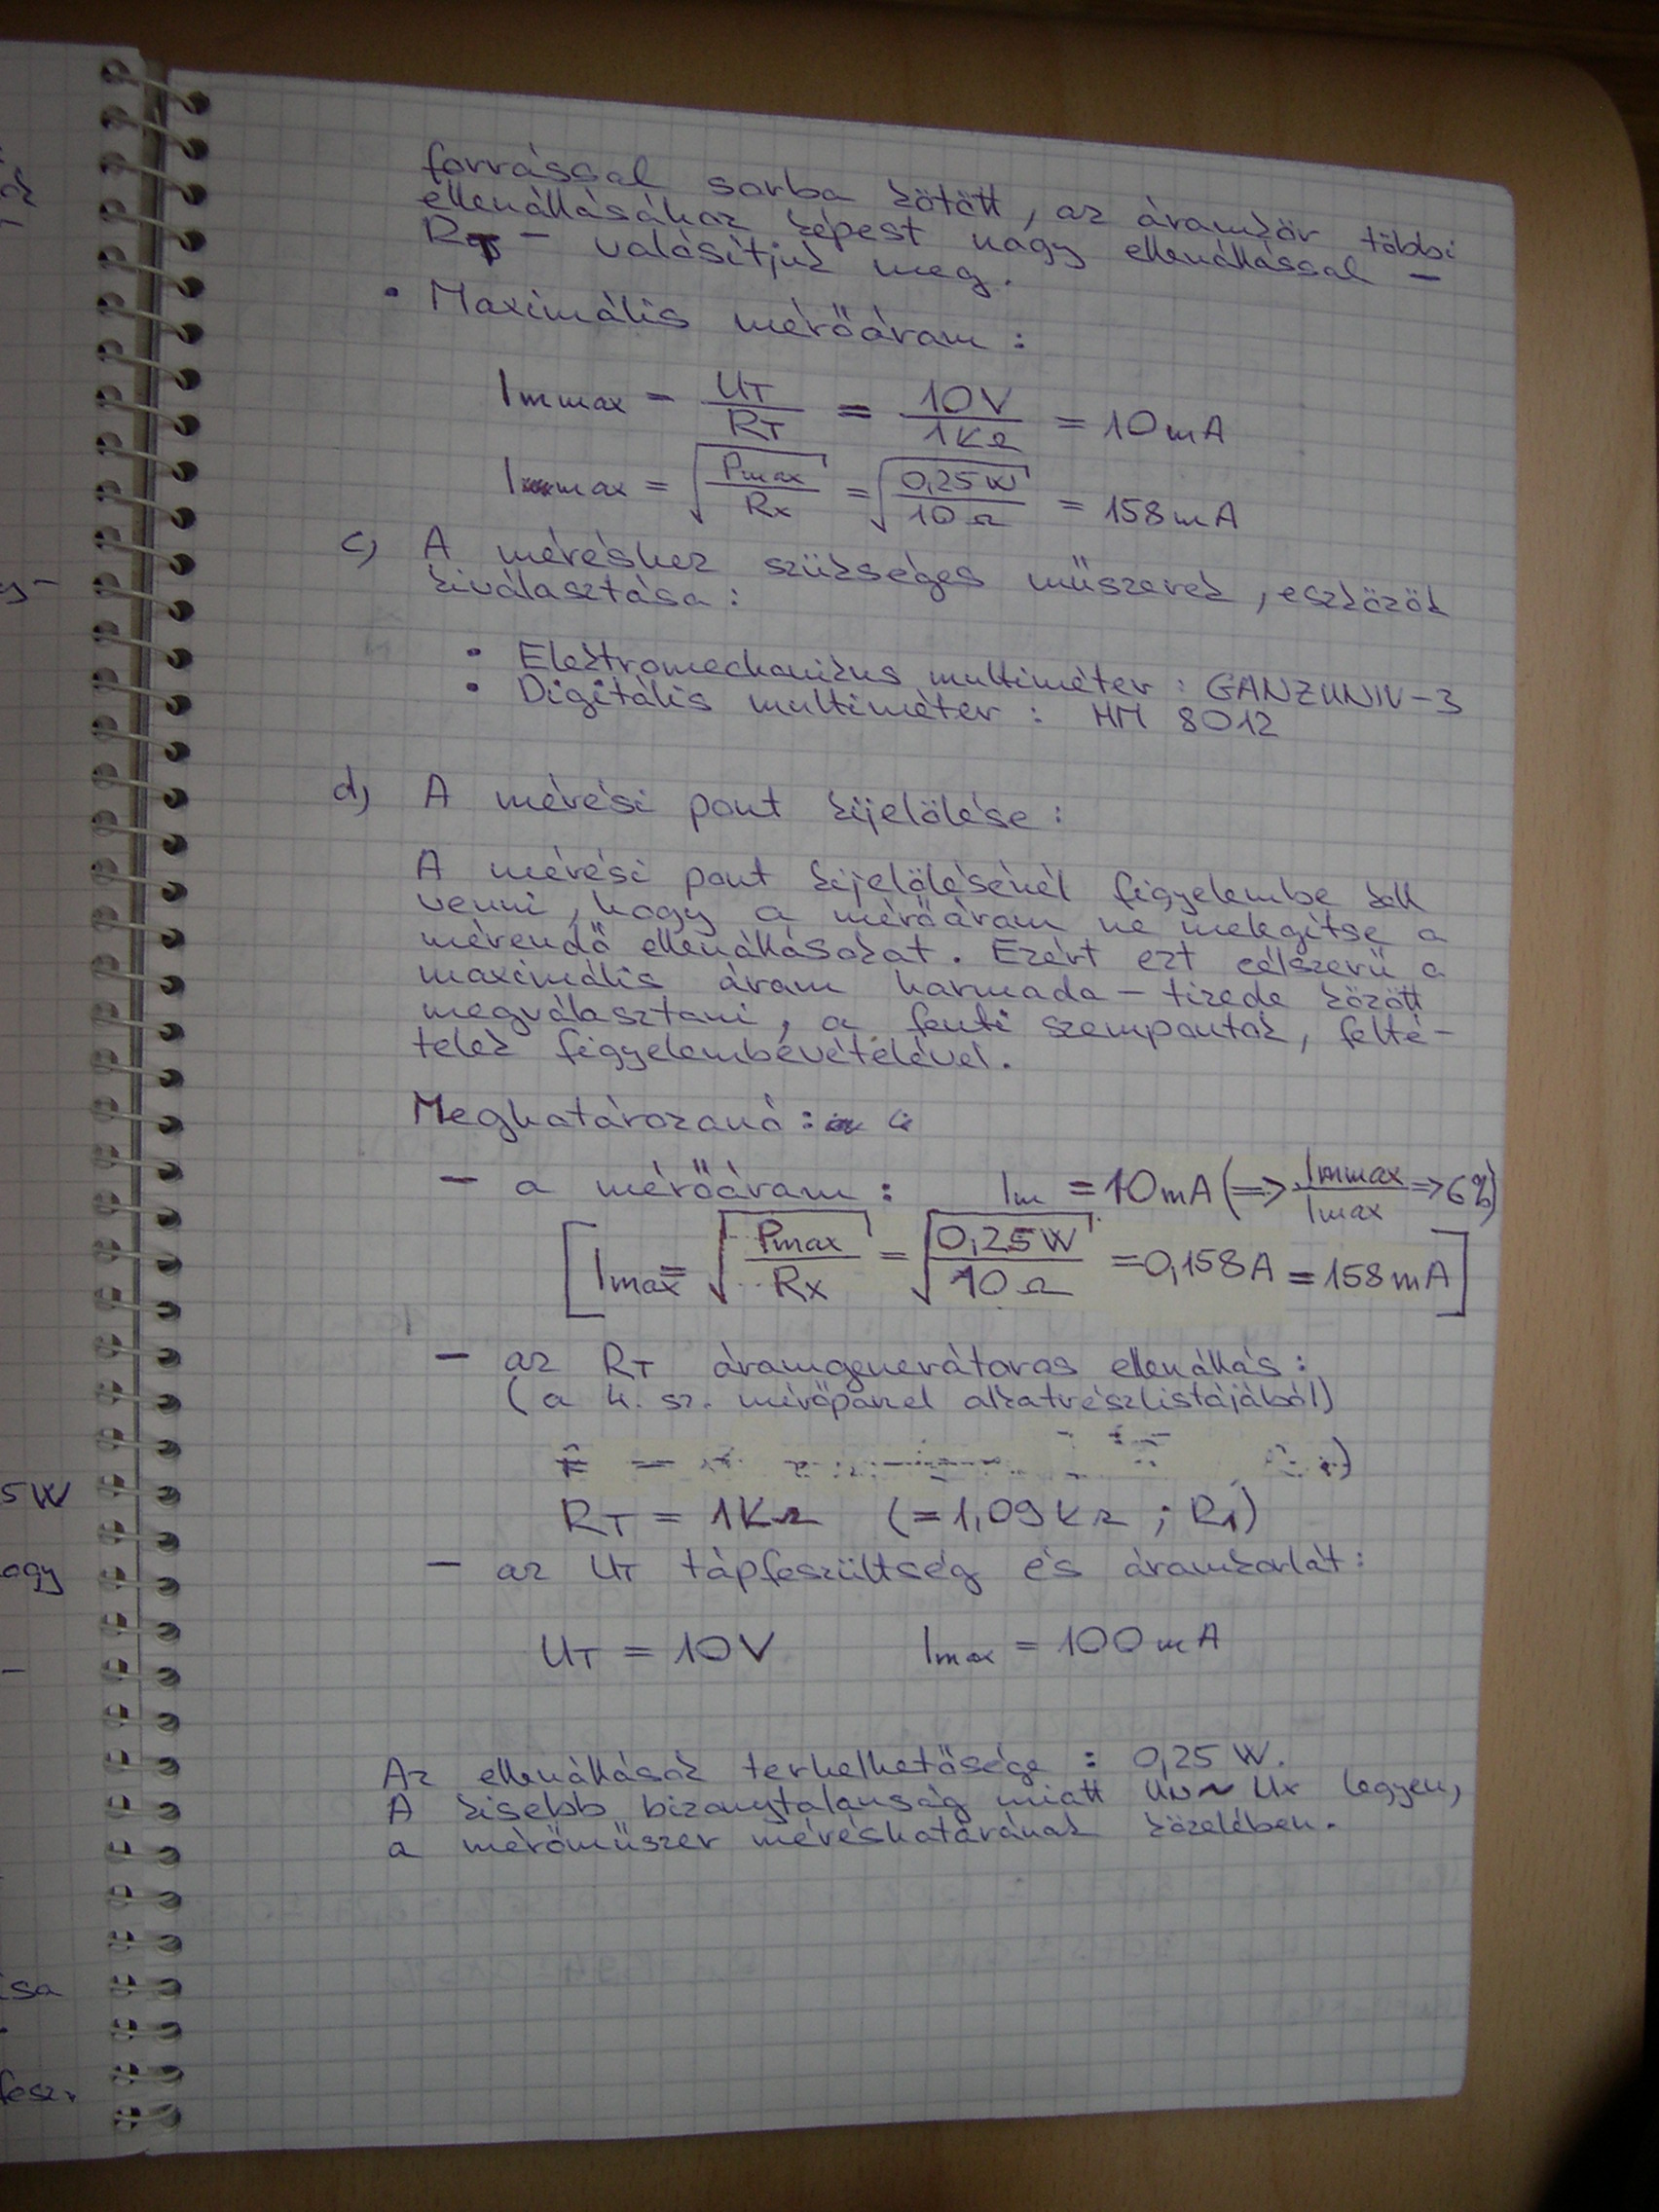 forrással sorba kötött, az áramkör többi
ellenállásához képest nagy ellenállással -
RT - valósítjuk meg.
• Maximális mérőáram :
Immax = UT / RT = 10V / 1KΩ = 10mA
Imax = √(Pmax / Rx) = √(0,25W / 10Ω) = 158mA
c) A méréshez szükséges műszerek, eszközök
kiválasztása :
• Elektromechanikus multiméter : GANZUNIV-3
• Digitális multiméter : HM 8012
d) A mérési pont kijelölése :
A mérési pont kijelölésénél figyelembe kell
venni, hogy a mérőáram ne melegítse a
mérendő ellenállásokat. Ezért ezt célszerű a
maximális áram harmada - tizede között
megválasztani, a fenti szempontok, felté-
telek figyelembevételével.
Meghatározandó :
- a mérőáram : Im = 10mA (=> Immax / Imax => 6%)
[Imax = √(Pmax / Rx) = √(0,25W / 10Ω) = 0,158A = 158mA]
- az RT áramgenerátoros ellenállás :
(a 4. sz. mérőpanel alkatrészlistájából)
RT = 1KΩ (= 1,09KΩ ; R1)
- az UT tápfeszültség és áramkorlát :
UT = 10V Imax = 100mA
Az ellenállások terhelhetősége : 0,25 W.
A kisebb bizonytalanság miatt UN ~ Ux legyen,
a mérőműszer méréshatárának közelében.
5W
ogy
-
isa
fesz.